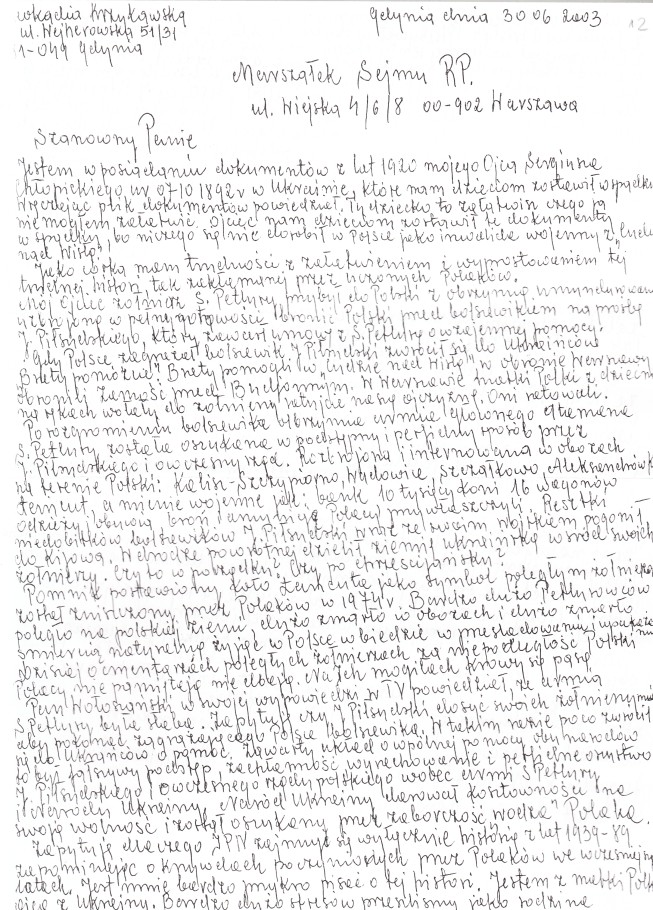 Krzykawska
ul. Wejherowska 51/31
1-049 Gdynia
Gdynia dnia 30 06 2003
12
Marszałek Sejmu RP.
ul. Wiejska 4/6/8 00-902 Warszawa
Szanowny Panie
Jestem w posiadaniu dokumentów z lat 1920 mojego Ojca Sergiusza
Chłopickiego ur 07 10 1892r w Ukrainie, które nam dzieciom zostawił w spadku
wręczając plik dokumentów powiedział. Ty dziecko to załatwisz czego ja
nie mogłem załatwić. Ojciec nam dzieciom zostawił te dokumenty
w spadku, bo niczego się nie dorobił w Polsce jako inwalida wojenny z "cudu
nad Wisłą".
Jako córka mam trudności z załatwieniem i wyprostowaniem tej
trudnej histori tak zakłamanej przez uczonych Polaków.
Mój Ojciec żołnierz S. Petlury, przybył do Polski z olbrzymią umundurowaną
uzbrojoną w pełnej gotowości bronić Polski przed bolszewikiem na prośbę
J. Piłsudskiego, który zawarł umowę z S. Petlurą o wzajemnej pomocy.
Gdy Polsce zagrażał bolszewik J. Piłsudski zwrócił się do Ukraińców
"Braty pomożcie" Braty pomogli w "cudzie nad Wisłą" w obronie Warszawy
obronili Zamość przed Budionnym. W Warszawie matki Polki z dziećmi
na rękach wołały do żołnierzy ratujcie naszą ojczyznę. Oni ratowali.
Po rozgromieniu bolszewika olbrzymia armia głównego Atamana
S. Petlury została oszukana w podstępny i perfidny sposób przez
J. Piłsudskiego i ówczesny rząd. Rozbrojona i internowana w obozach
na terenie Polski: Kalisz-Szczypiorno, Wadowice Szczałkowo, Aleksandrów K
Łańcut, a mienie wojenne jak: bank 10 tysięcy koni 16 wagonów
odzieży, obuwia broń i amunicję Polacy przywłaszczyli. Resztki
niedobitków bolszewików J. Piłsudski wraz ze swoim wojskiem pogonił
do Kijowa. W drodze powrotnej dzielił ziemię ukraińską wśród swoich
żołnierzy. Czy to w porządku? Czy po chrześcijańsku?
Pomnik postawiony koło Łańcuta jako symbol poległym żołnierzom
został zniszczony przez Polaków w 1974r. Bardzo dużo Petlurowców
poległo na polskiej ziemi, dużo zmarło w obozach i dużo zmarło
śmiercią naturalną żyjąc w Polsce w biedzie w prześladowaniu i upokorzeniu
dzisiaj o cmentarzach poległych żołnierzach za niepodległość Polski
Polacy nie pamiętają nie dbają. Na Ich mogiłach krowy się pasą.
Pan Wołoszański w swojej wypowiedzi w TV powiedział, że armia
S Petlury była słaba. Zapytuję czy J Piłsudski dosyć swoich żołnierzy miał
aby pokonać zagrażającego Polsce bolszewika. W takim razie po co zwrócił
się do Ukraińców o pomoc. Zawarty układ o wspólnej pomocy obu narodów
to był fałszywy podstęp, zachłanność, wyrachowanie i perfidne oszustwo
J. Piłsudskiego i ówczesnego rządu polskiego wobec armi S Petlury
i Narodu Ukrainy. Naród Ukrainy darował kosztowności na
swoją wolność i został oszukany przez zaborczość "wodza" Polaka.
Zapytuję dlaczego IPN zajmuje się wyłącznie historią z lat 1939-89
zapominając o krzywdach poczynionych przez Polaków we wcześniejszych
latach. Jest mnie bardzo przykro pisać o tej histori. Jestem z matki Polki
ojca z Ukrainy. Bardzo dużo stresów przeszliśmy jako rodzina